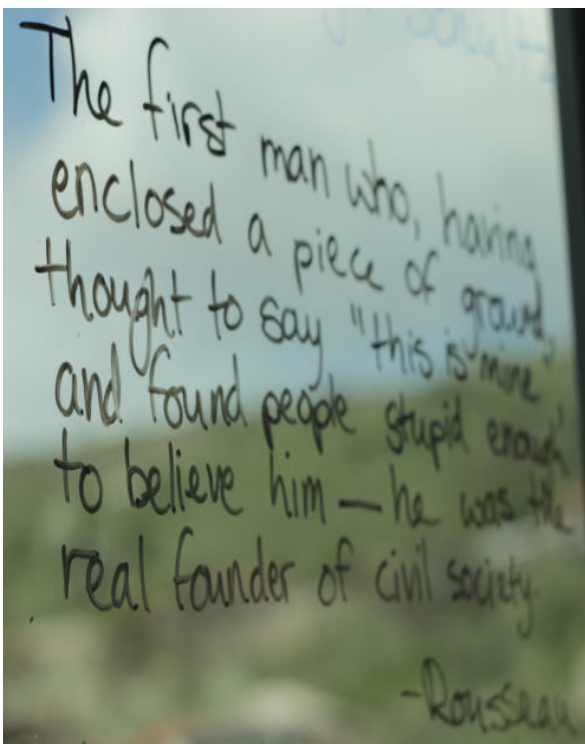 Schultz
The first
man who, having
enclosed a piece of ground,
thought to say "this is mine"
and found people stupid enough
to believe him — he was the
real founder of civil society.
-Rousseau